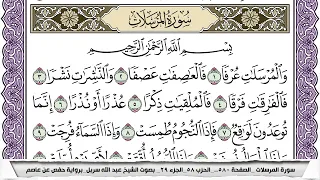 سورة المرسلات
بِسْمِ اللَّهِ الرَّحْمَٰنِ الرَّحِيمِ
وَالْمُرْسَلَاتِ عُرْفًا ١ فَالْعَاصِفَاتِ عَصْفًا ٢ وَالنَّاشِرَاتِ نَشْرًا ٣
فَالْفَارِقَاتِ فَرْقًا ٤ فَالْمُلْقِيَاتِ ذِكْرًا ٥ عُذْرًا أَوْ نُذْرًا ٦ إِنَّمَا
تُوعَدُونَ لَوَاقِعٌ ٧ فَإِذَا النُّجُومُ طُمِسَتْ ٨ وَإِذَا السَّمَاءُ فُرِجَتْ ٩
سورة المرسلات الصفحة ٥٨٠ الحزب ٥٨ الجزء ٢٩ بصوت الشيخ عبد الله سربل برواية حفص عن عاصم